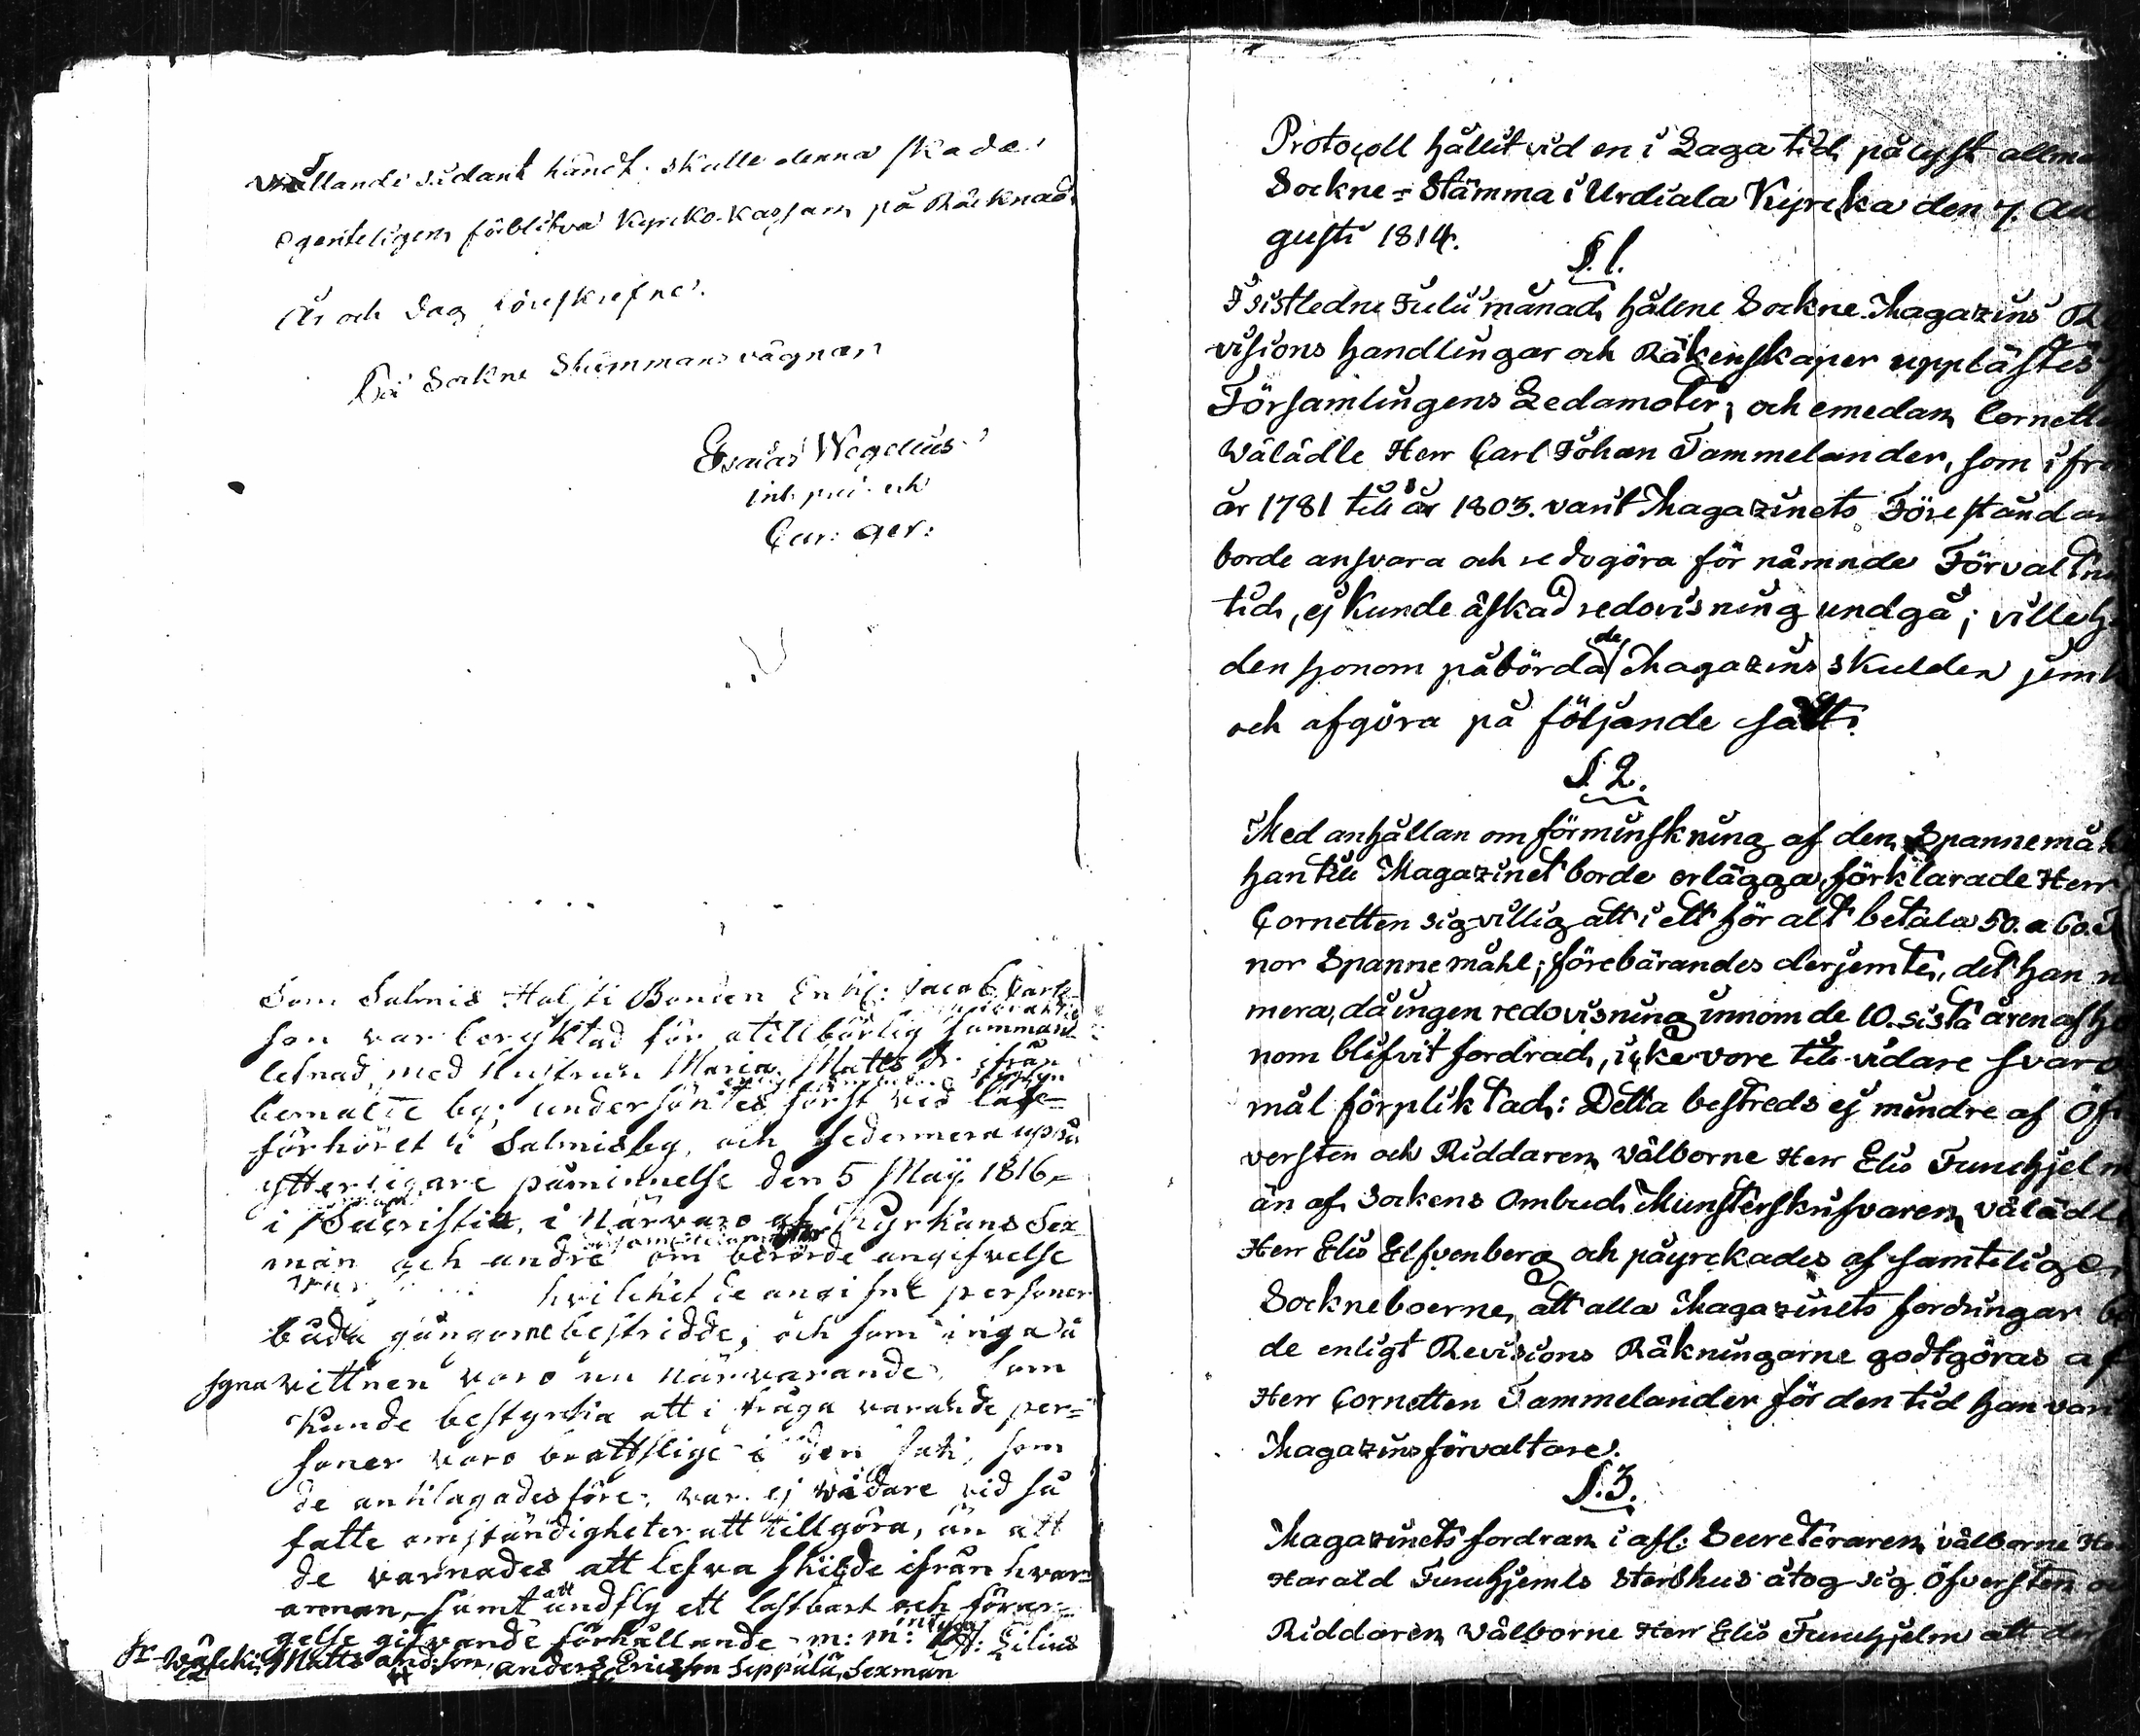 vållande sådant händt. skulle denna skada
egenteligen förblifva Kyrko-Kassans på Räknad.
År och dag föreskrefne.
På Sockne Stämmans vägnar
Esaias Wegelius
Cur: ger:
Som Salmis Halsti Bonden En lig: Jacob Carls-
son var beryktad för otillbörlig samman-
lefnad med Hustrun Maria Matts Dr ifrån
bemälte by; undersöktes först vid läse-
förhöret i Salmis by, och sedermera uppå
ytterligare påminnelse den 5 Maij 1816
i Sacristian, i Närvaro af Kyrkans Sex
män och andre om berörde angifvelse
hvilcket de angifne personer
båda gångorne bestridde; och som inga
sgna vittnen voro nu närvarande, som
kunde bestyrka att i fråga varande per-
soner voro brottslige i den sak, som
de anklagades före, var ej vidare vid så
fatte omständigheter att tillgöra, än att
de varnades att lefva skilde ifrån hvar-
annan, samt att undfly ett lastbart och förar-
gelse gifvande förhållande m: m: intyga
Matts Andsson, Anders Ericsson Seppälä, Sexman
Protocoll hållit vid en i Laga tid pålyst allmä
Sockne-Stämma i Urdiala Kyrcka den 7. Au
gusti 1814.
§. 1.
I sistledne Julii månad hållne Sockne Magazins Re
visions handlingar och Räkenskaper upplästes
Församlingens Ledamoter; och emedan Cornette
Välädle Herr Carl Johan Tammelander, som ifrå
år 1781 till år 1803. varit Magazinets Föreståndar
borde ansvara och redogöra för nämnde Förvaltni
tid, ej kunde äskad redovisning undgå; ville h
den honom påbördade Magazins skulden jemk
och afgöra på följande sätt.
§. 2.
Med anhållan om förminskning af den Spannemåh
han till Magazinet borde erlägga, förklarade Herr
Cornetten sig villig att i ett för alt betala 50. a 60. t
nor Spannemåhl; förebärandes derjemte, det han n
mera, då ingen redovisning innom de 10. sista åren af ho
nom blifvit fordrad, icke vore till vidare svaro
mål förpliktad: Detta bestreds ej mindre af Öf
versten och Riddaren Välborne Herr Elis Furuhjelm
än af Sockens Ombud Munsterskrifvaren, välädle
Herr Elis Elfvenberg och påyrckades af samtelige
Sockneboerne, att alla Magazinets fordringar bo
de enligt Revisions Räkningarne godtgöras af
Herr Cornetten Tammelander för den tid han vari
Magazinsförvaltare.
§. 3.
Magazinets fordran i afl: Secreteraren välborne He
Harald Furuhjelms Sterbhus åtog sig Öfversten o
Riddaren Välborne Herr Elis Furuhjelm att de